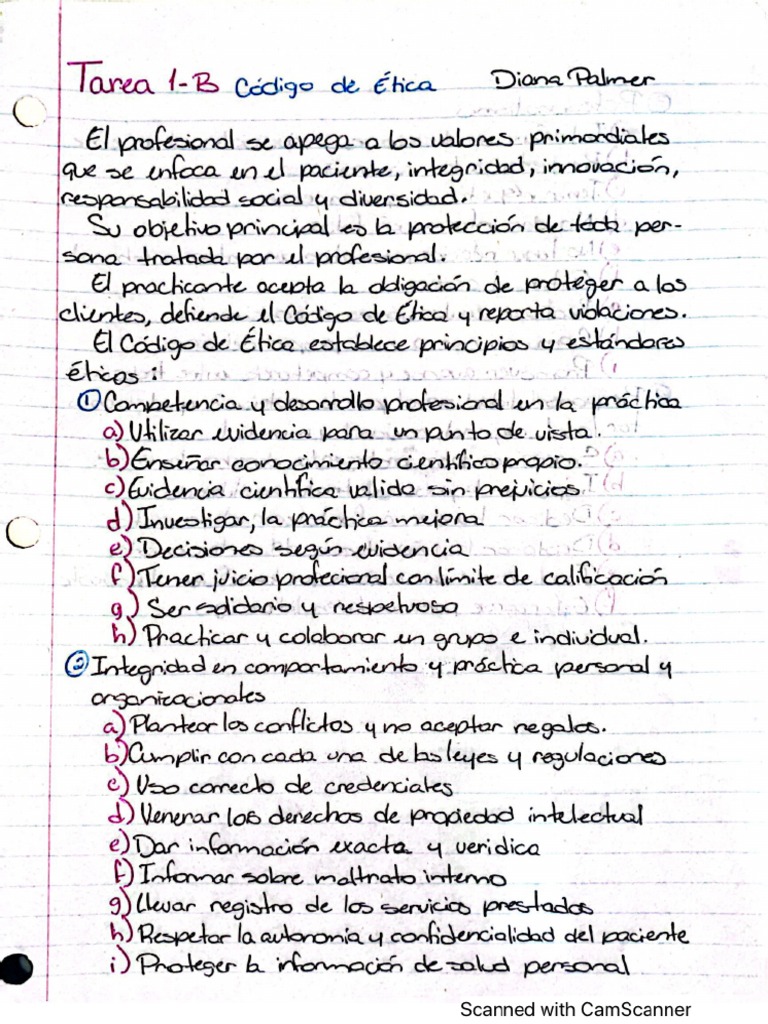 Tarea 1-B Código de Ética Diana Palmer
El profesional se apega a los valores primordiales
que se enfoca en el paciente, integridad, innovación,
responsabilidad social y diversidad.
Su objetivo principal es la protección de toda per-
sona tratada por el profesional.
El practicante acepta la obligación de proteger a los
clientes, defiende el Código de Ética y reporta violaciones.
El Código de Ética establece principios y estándares
éticos:
① Competencia y desarrollo profesional en la práctica
a) Utilizar evidencia para un punto de vista.
b) Enseñar conocimiento científico propio.
c) Evidencia científica valida sin prejuicios.
d) Investigar, la práctica mejora
e) Decisiones según evidencia
f) Tener juicio profecional con límite de calificación
g) Ser solidario y respetuoso
h) Practicar y colaborar en grupo e individual.
② Integridad en comportamiento y práctica personal y
organizacionales
a) Plantear los conflictos y no aceptar regalos.
b) Cumplir con cada una de las leyes y regulaciones
c) Uso correcto de credenciales
d) Venerar los derechos de propiedad intelectual
e) Dar información exacta y veridica
f) Informar sobre maltrato interno
g) Llevar registro de los servicios prestados
h) Respetar la autonomía y confidencialidad del paciente
i) Proteger la información de salud personal
Scanned with CamScanner